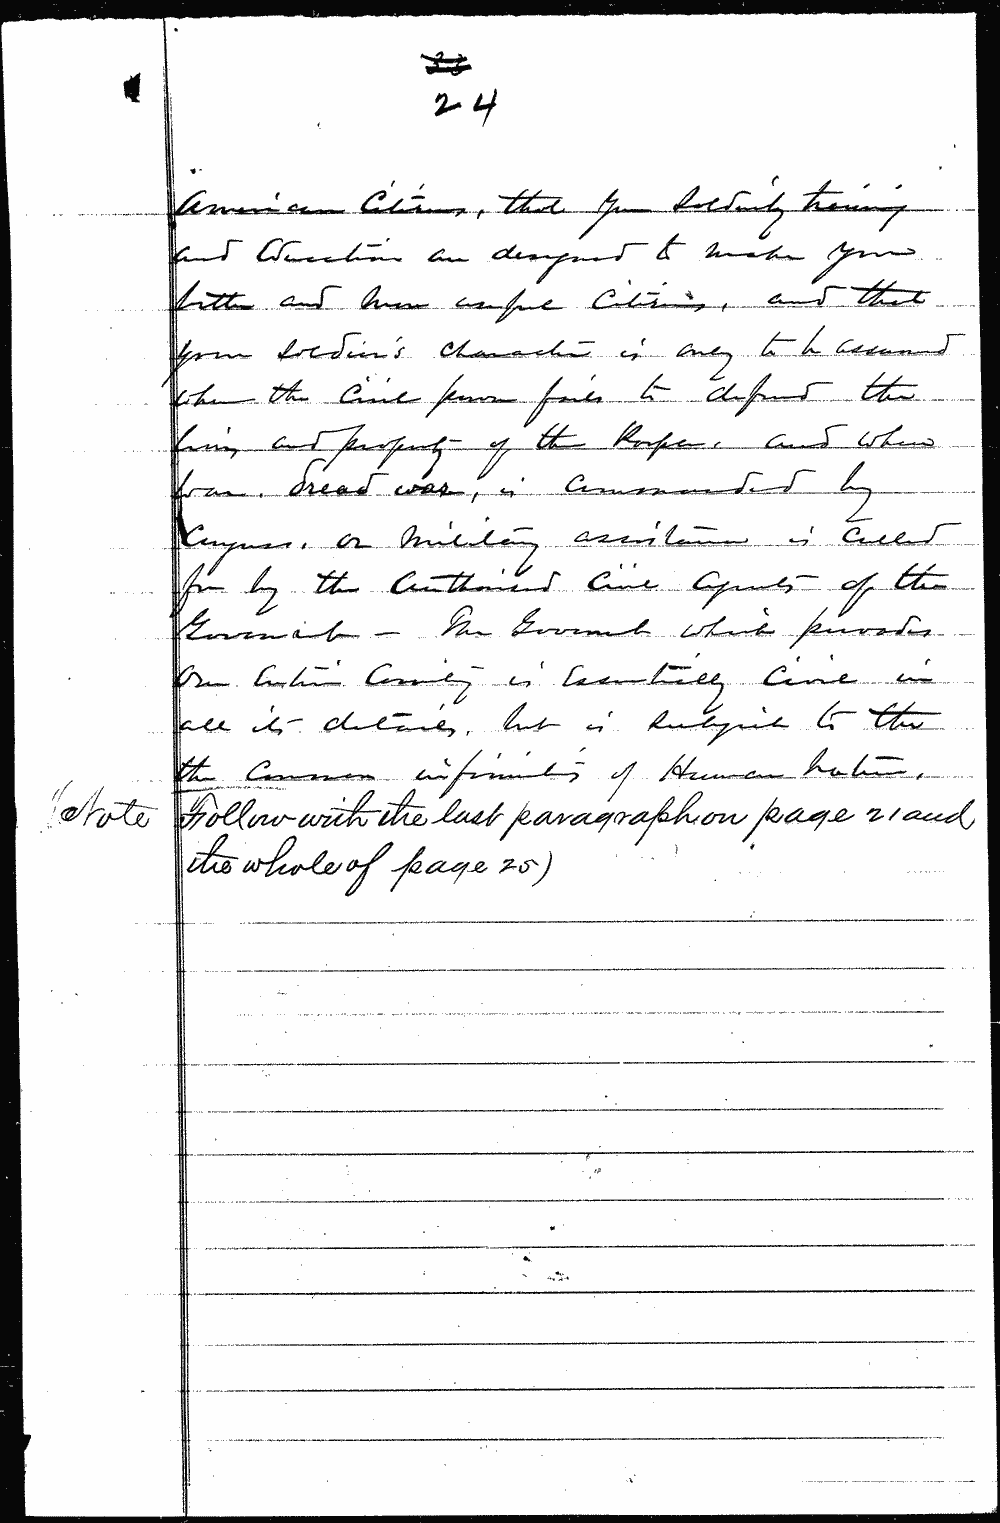 24
American Citizens, that your Soldierly training
and Education are designed to make you
better and more useful Citizens, and that
your Soldier's character is only to be assumed
when the Civil power fails to defend the
lives and property of the People. and when
war. dread war, is commanded by
Congress. or Military assistance is Called
for by the Authorised Civil Agents of the
Government — The Government which pervades
our Entire Country is Essentially Civil in
all its details, but is subject to the
the Common infirmities of Human Nature.
(Note Follow with the last paragraph on page 21 and
the whole of page 25)